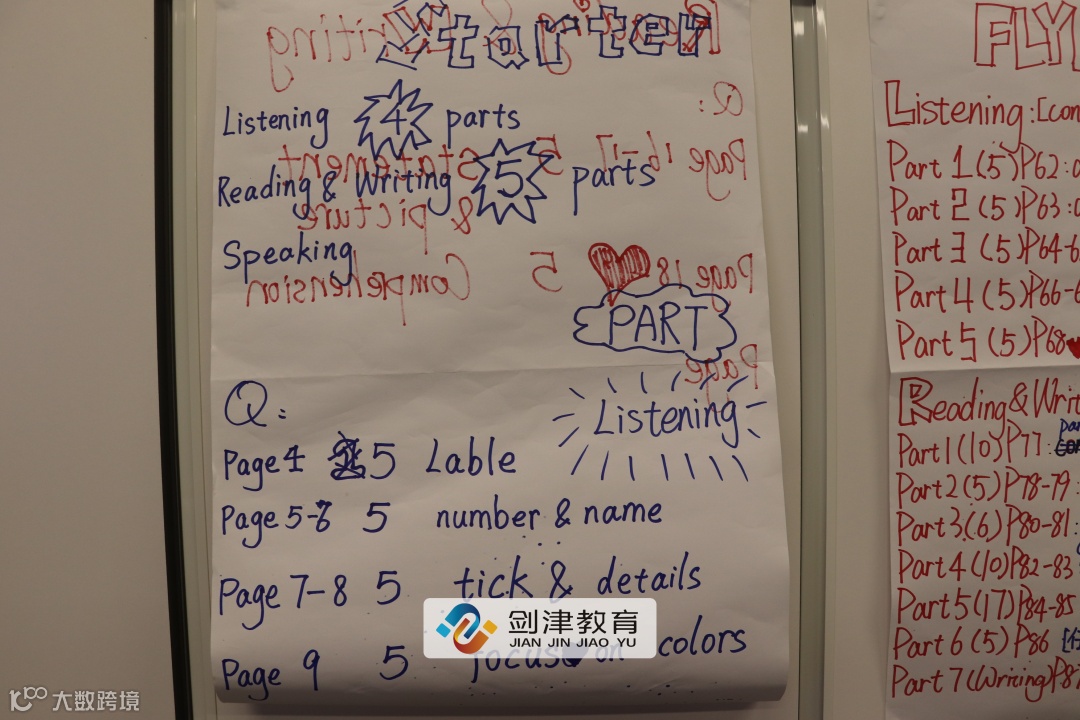 Starter
Listening 4 parts
Reading & Writing 5 parts
Speaking
PART
Listening
Q:
Page 4 5 Lable
Page 5-6 5 number & name
Page 7-8 5 tick & details
Page 9 5 focus on colors
Q:
Page 16-17 5 statement
& picture
Page 18 5 Comprehension
Page
FLY
Listening:[con
Part 1(5)P62:
Part 2(5)P63:
Part 3(5)P64-6
Part 4(5)P66-6
Part 5(5)P68
Reading&Writ
Part 1(10)P77:
Part 2(5)P78-79:
Part 3.(6)P80-81:
Part 4(10)P82-83
Part 5(17)P84-85
Part 6(5)P86
Part 7(Writing)P87
剑津教育
JIAN JIN JIAO YU
大数跨境